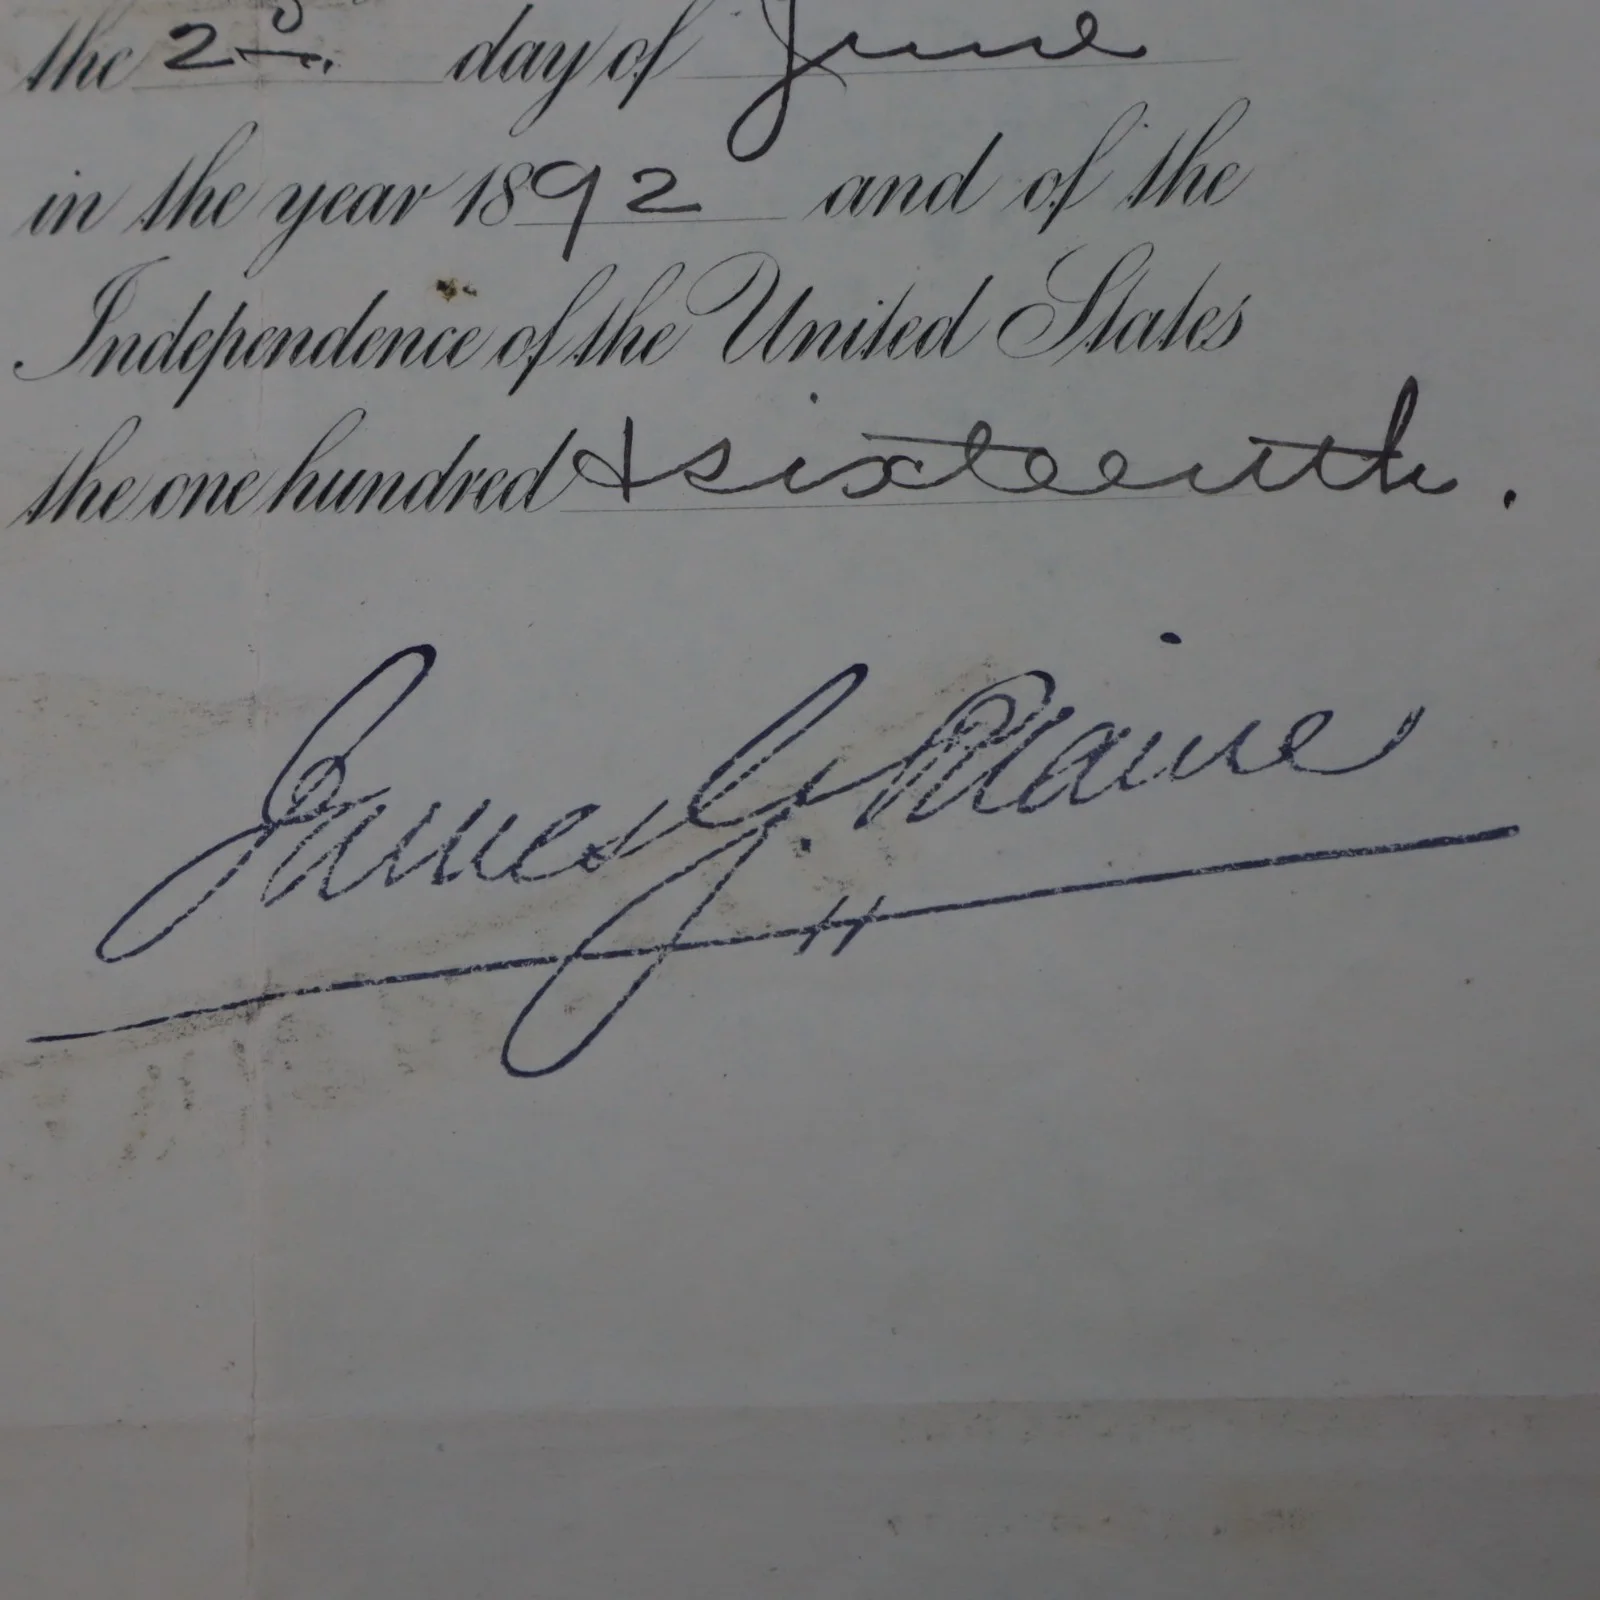 the 2d. day of June
in the year 1892 and of the
Independence of the United States
the one hundred & sixteenth.
James G. Blaine